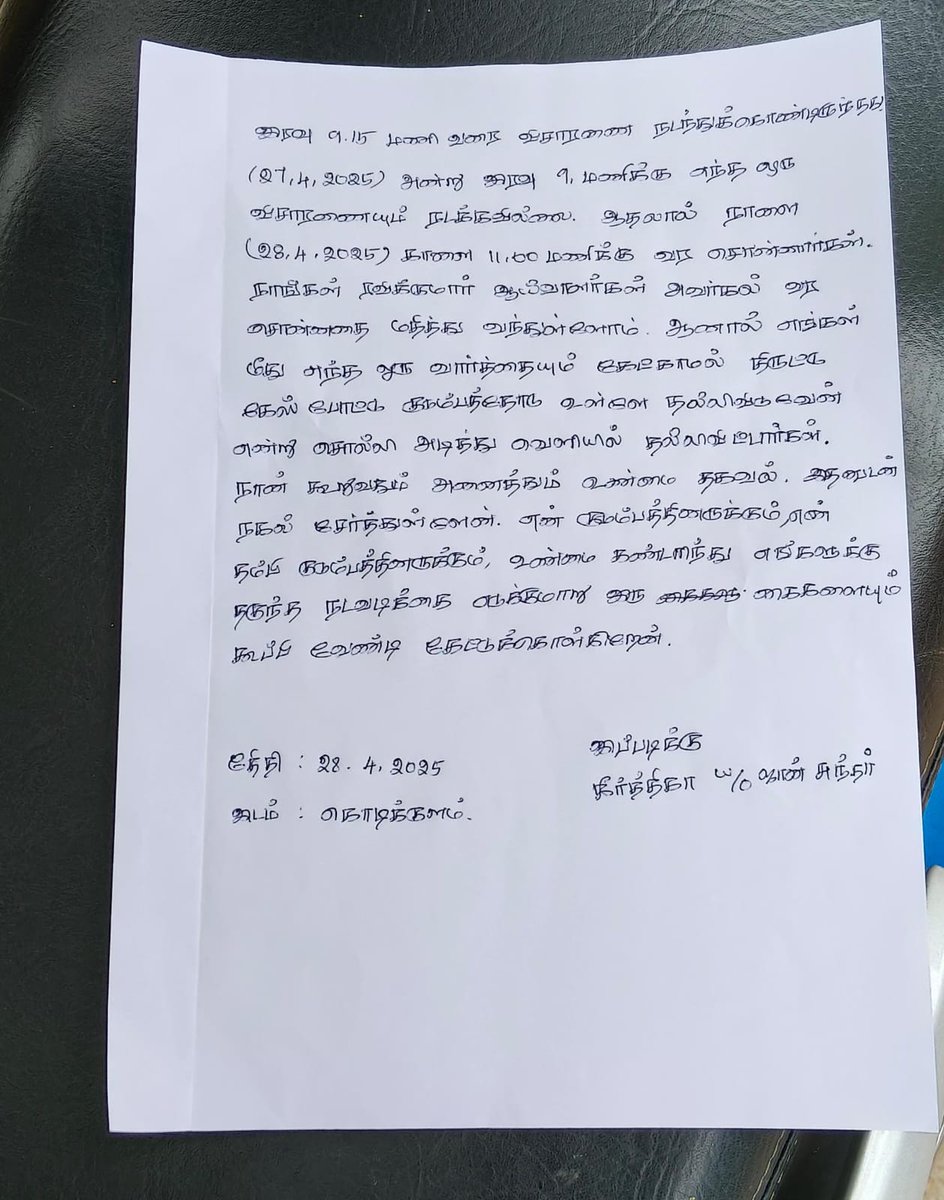 இரவு 9.15 மணி வரை விசாரணை நடந்துக்கொண்டிருந்தது
(27,4,2025) அன்று இரவு 9, மணிக்கு எந்த ஒரு
விசாரணையும் நடக்கவில்லை. ஆதலால் நாளை
(28,4,2025) காலை 11,00 மணிக்கு வர சொன்னார்கள்.
நாங்கள் ரவிக்குமார் ஆய்வாளர்கள் அவர்கல் வர
சொன்னதை மதித்து வந்துள்ளோம். ஆனால் எங்கள்
மீது எந்த ஒரு வார்த்தையும் கேட்காமல் திருட்டு
கேஸ் போட்டு குடும்பத்தோடு உள்ளே தல்லிவிடுவேன்
என்று சொல்லி அடித்து வெளியில் தல்லிவிட்டார்கள்.
நான் கூறுவதும் அனைத்தும் உண்மை தகவல். இதனுடன்
நகல் சேர்த்துள்ளேன். என் குடும்பத்தினருக்கும், என்
தம்பி குடும்பத்தினருக்கும், உண்மை கண்டறிந்து எங்களுக்கு
தகுந்த நடவடிக்கை எடுக்குமாறு இரு கைகளையும்
கூப்பி வேண்டி கேட்டுக்கொள்கிறேன்.
தேதி : 28.4,2025
இடம் : கொடிக்குளம்.
இப்படிக்கு
கீர்த்திகா W/O ஜான் சுந்தர்